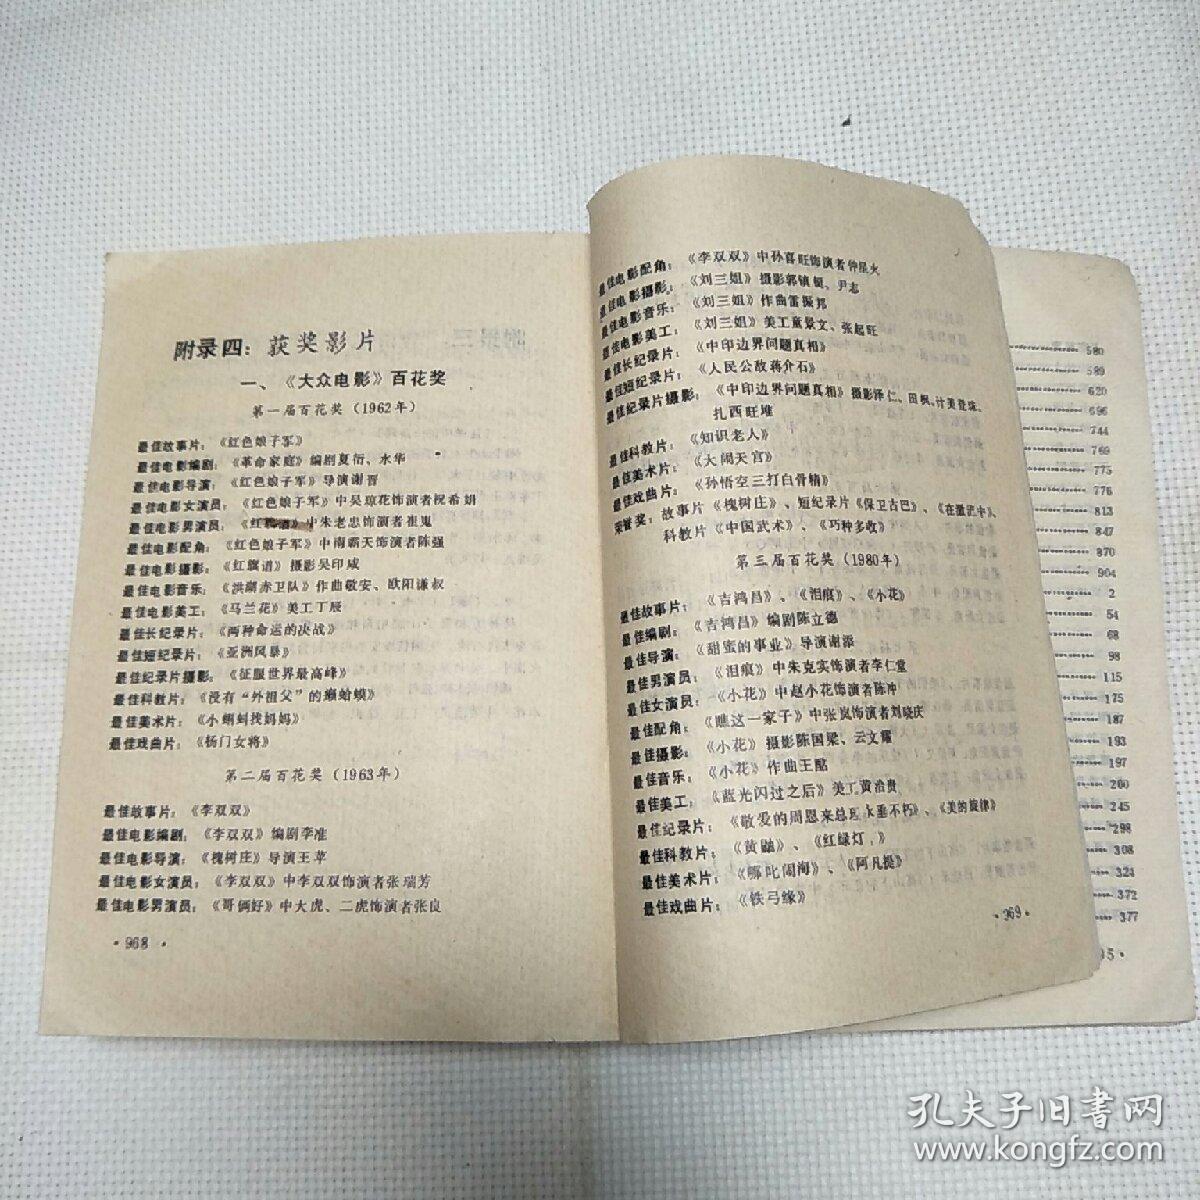 附录四：获奖影片
一、《大众电影》百花奖
第一届百花奖（1962年）
最佳故事片：《红色娘子军》
最佳电影编剧：《革命家庭》编剧夏衍、水华
最佳电影导演：《红色娘子军》导演谢晋
最佳电影女演员：《红色娘子军》中吴琼花饰演者祝希娟
最佳电影男演员：《红旗谱》中朱老忠饰演者崔嵬
最佳电影配角：《红色娘子军》中南霸天饰演者陈强
最佳电影摄影：《红旗谱》摄影吴印咸
最佳电影音乐：《洪湖赤卫队》作曲敬安、欧阳谦叔
最佳电影美工：《马兰花》美工丁辰
最佳长纪录片：《两种命运的决战》
最佳短纪录片：《亚洲风暴》
最佳纪录片摄影：《征服世界最高峰》
最佳科教片：《没有“外祖父”的癞蛤蟆》
最佳美术片：《小蝌蚪找妈妈》
最佳戏曲片：《杨门女将》
第二届百花奖（1963年）
最佳故事片：《李双双》
最佳电影编剧：《李双双》编剧李准
最佳电影导演：《槐树庄》导演王苹
最佳电影女演员：《李双双》中李双双饰演者张瑞芳
最佳电影男演员：《哥俩好》中大虎、二虎饰演者张良
·968·
最佳电影配角：《李双双》中孙喜旺饰演者仲星火
最佳电影摄影：《刘三姐》摄影郭镇铤、尹志
最佳电影音乐：《刘三姐》作曲雷振邦
最佳电影美工：《刘三姐》美工童景文、张起旺
最佳长纪录片：《中印边界问题真相》
最佳短纪录片：《人民公敌蒋介石》
最佳纪录片摄影：《中印边界问题真相》摄影泽仁、田枫、计美登珠、
扎西旺堆
最佳科教片：《知识老人》
最佳美术片：《大闹天宫》
最佳戏曲片：《孙悟空三打白骨精》
荣誉奖：故事片《槐树庄》、短纪录片《保卫古巴》、《在激流中》、
科教片《中国武术》、《巧种多收》
第三届百花奖（1980年）
最佳故事片：《吉鸿昌》、《泪痕》、《小花》
最佳编剧：《吉鸿昌》编剧陈立德
最佳导演：《甜蜜的事业》导演谢添
最佳男演员：《泪痕》中朱克实饰演者李仁堂
最佳女演员：《小花》中赵小花饰演者陈冲
最佳配角：《瞧这一家子》中张岚饰演者刘晓庆
最佳摄影：《小花》摄影陈国梁、云文耀
最佳音乐：《小花》作曲王酩
最佳美工：《蓝光闪过之后》美工黄治贵
最佳纪录片：《敬爱的周恩来总理永垂不朽》、《美的旋律》
最佳科教片：《黄鼬》、《红绿灯》
最佳美术片：《哪吒闹海》、《阿凡提》
最佳戏曲片：《铁弓缘》
·969·
580
589
620
696
744
769
775
776
813
847
870
904
2
54
68
98
115
175
187
193
197
200
245
298
308
323
372
377
孔夫子旧书网
www.kongfz.com